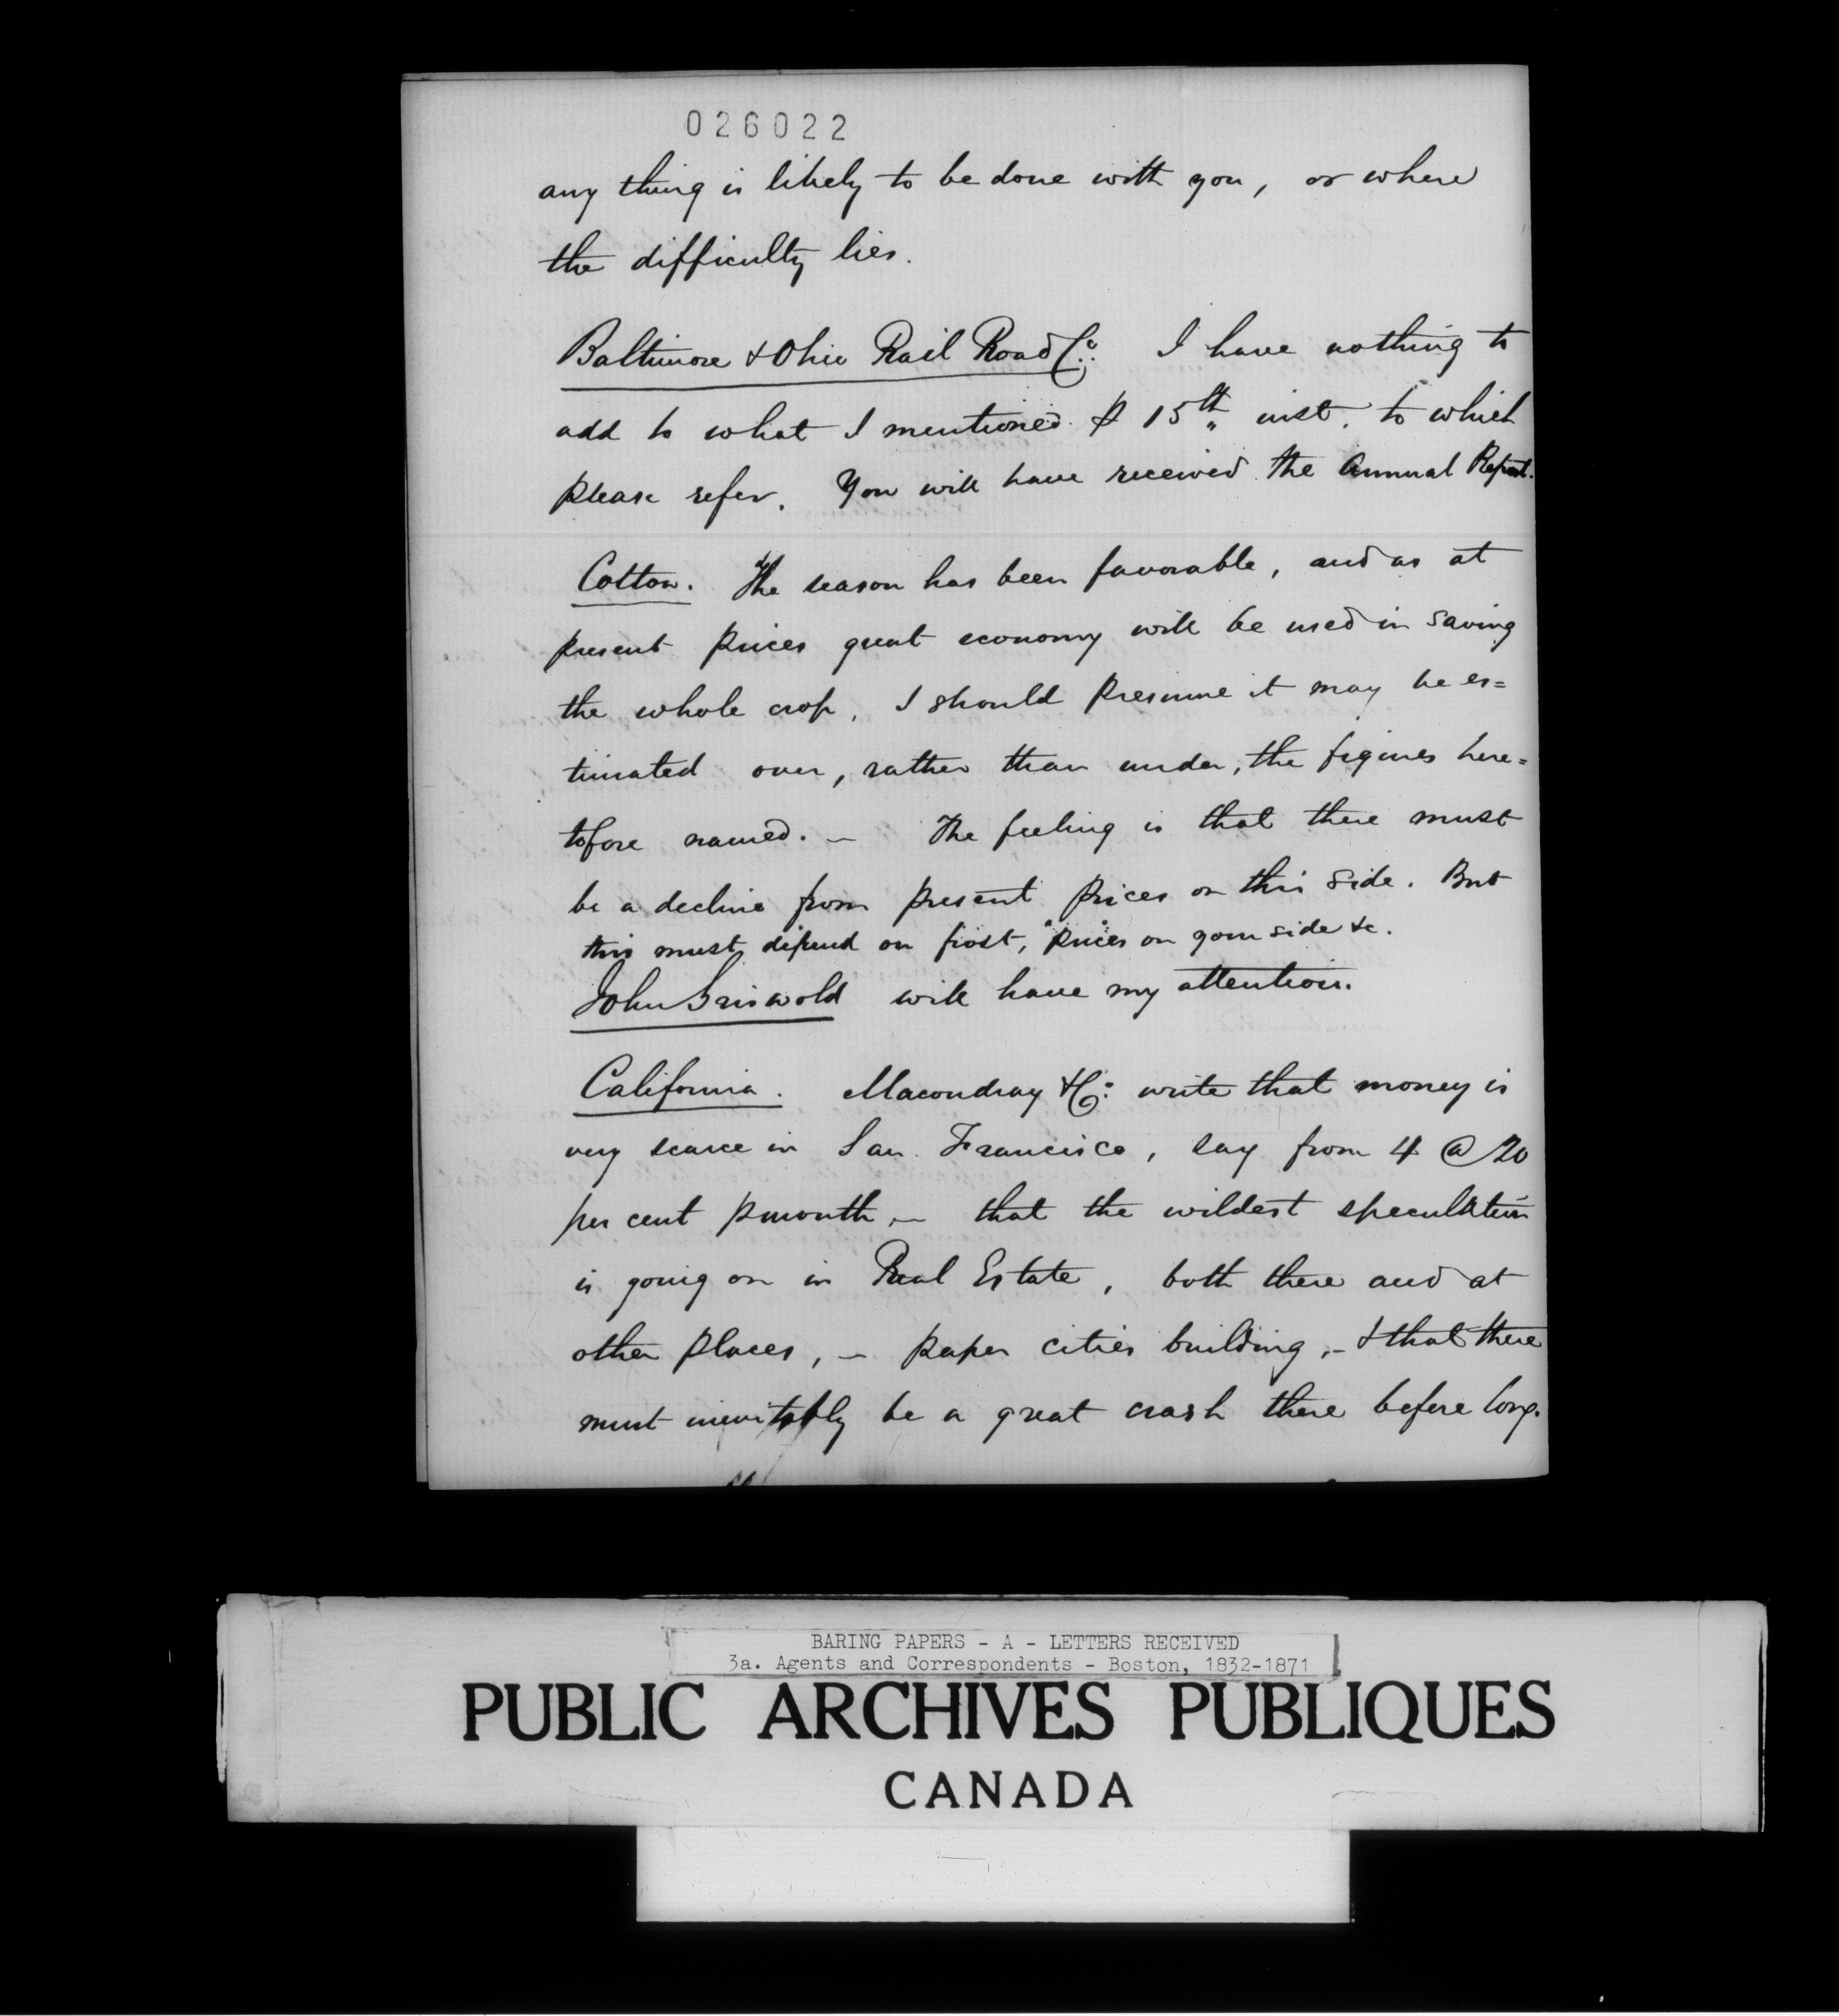 026022
any thing is likely to be done with you, or where
the difficulty lies.
Baltimore & Ohio Rail Road Co: I have nothing to
add to what I mentioned ⅌ 15th inst. to which
please refer. You will have received the Annual Report.
Cotton. The season has been favorable, and as at
present prices great economy will be used in saving
the whole crop, I should presume it may be es=
timated over, rather than under, the figures here=
tofore named. — The feeling is that there must
be a decline from present prices on this side. But
this must depend on frost, prices on your side &c.
John Griswold will have my attention.
California. Macondray & Co: write that money is
very scarce in San Francisco, say from 4 @ 20
per cent ⅌ month, — that the wildest speculation
is going on in Real Estate, both there and at
other places, — paper cities building, — & that there
must inevitably be a great crash there before long.
BARING PAPERS - A - LETTERS RECEIVED
3a. Agents and Correspondents - Boston, 1832-1871
PUBLIC ARCHIVES PUBLIQUES
CANADA